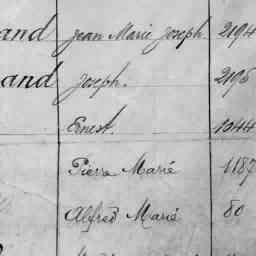 and Jean Marie Joseph. 2194
and Joseph. 2195
Ernest. 1044
Pierre Marie 1187
Alfred Marie 80